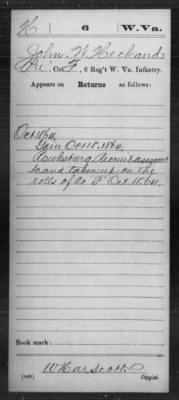 H 6 W. Va.
John W. Heckand
Pri, Co. F, 6 Reg't W. Va. Infantry.
Appears on Returns as follows:
Oct 1864.
Gain Oct 18. 1864.
Recruit assigned
to and taken up on the
rolls of Co F Oct 18. 64.
Book mark:
(546) Copyist.